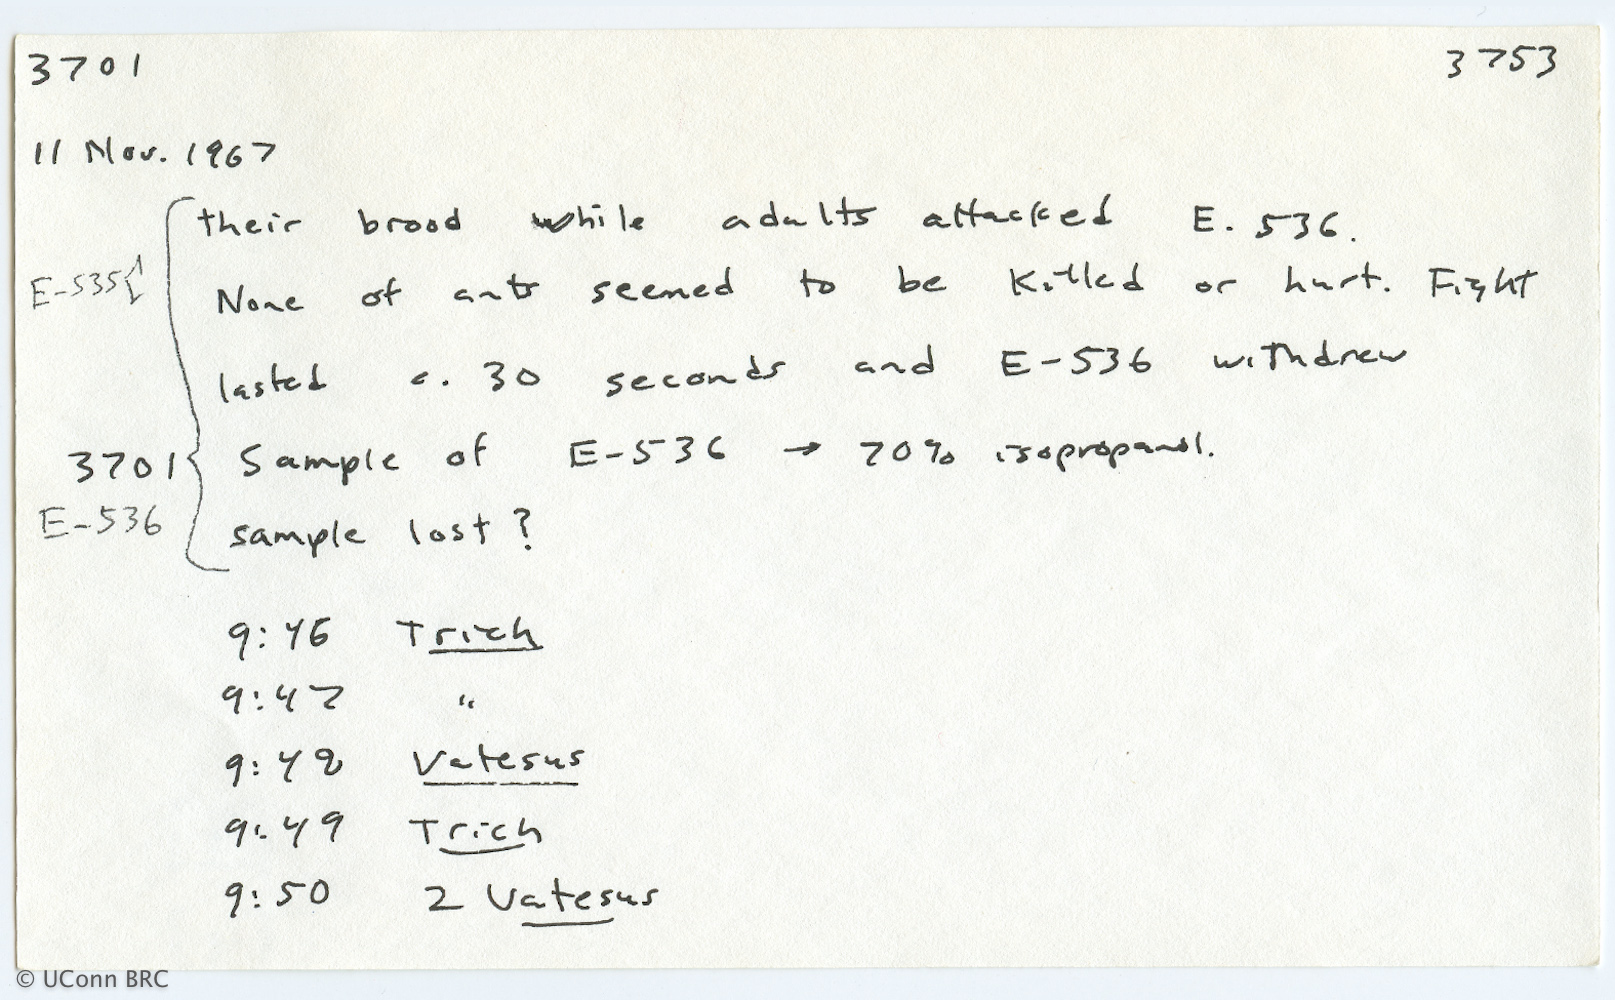 3701 3753
11 Nov. 1967
their brood while adults attacked E. 536.
E-535 None of ants seemed to be killed or hurt. Fight
lasted c. 30 seconds and E-536 withdrew
3701 Sample of E-536 → 70% isopropanol.
E-536 sample lost?
9:46 Trich
9:47 "
9:48 Vatesus
9:49 Trich
9:50 2 Vatesus
© UConn BRC